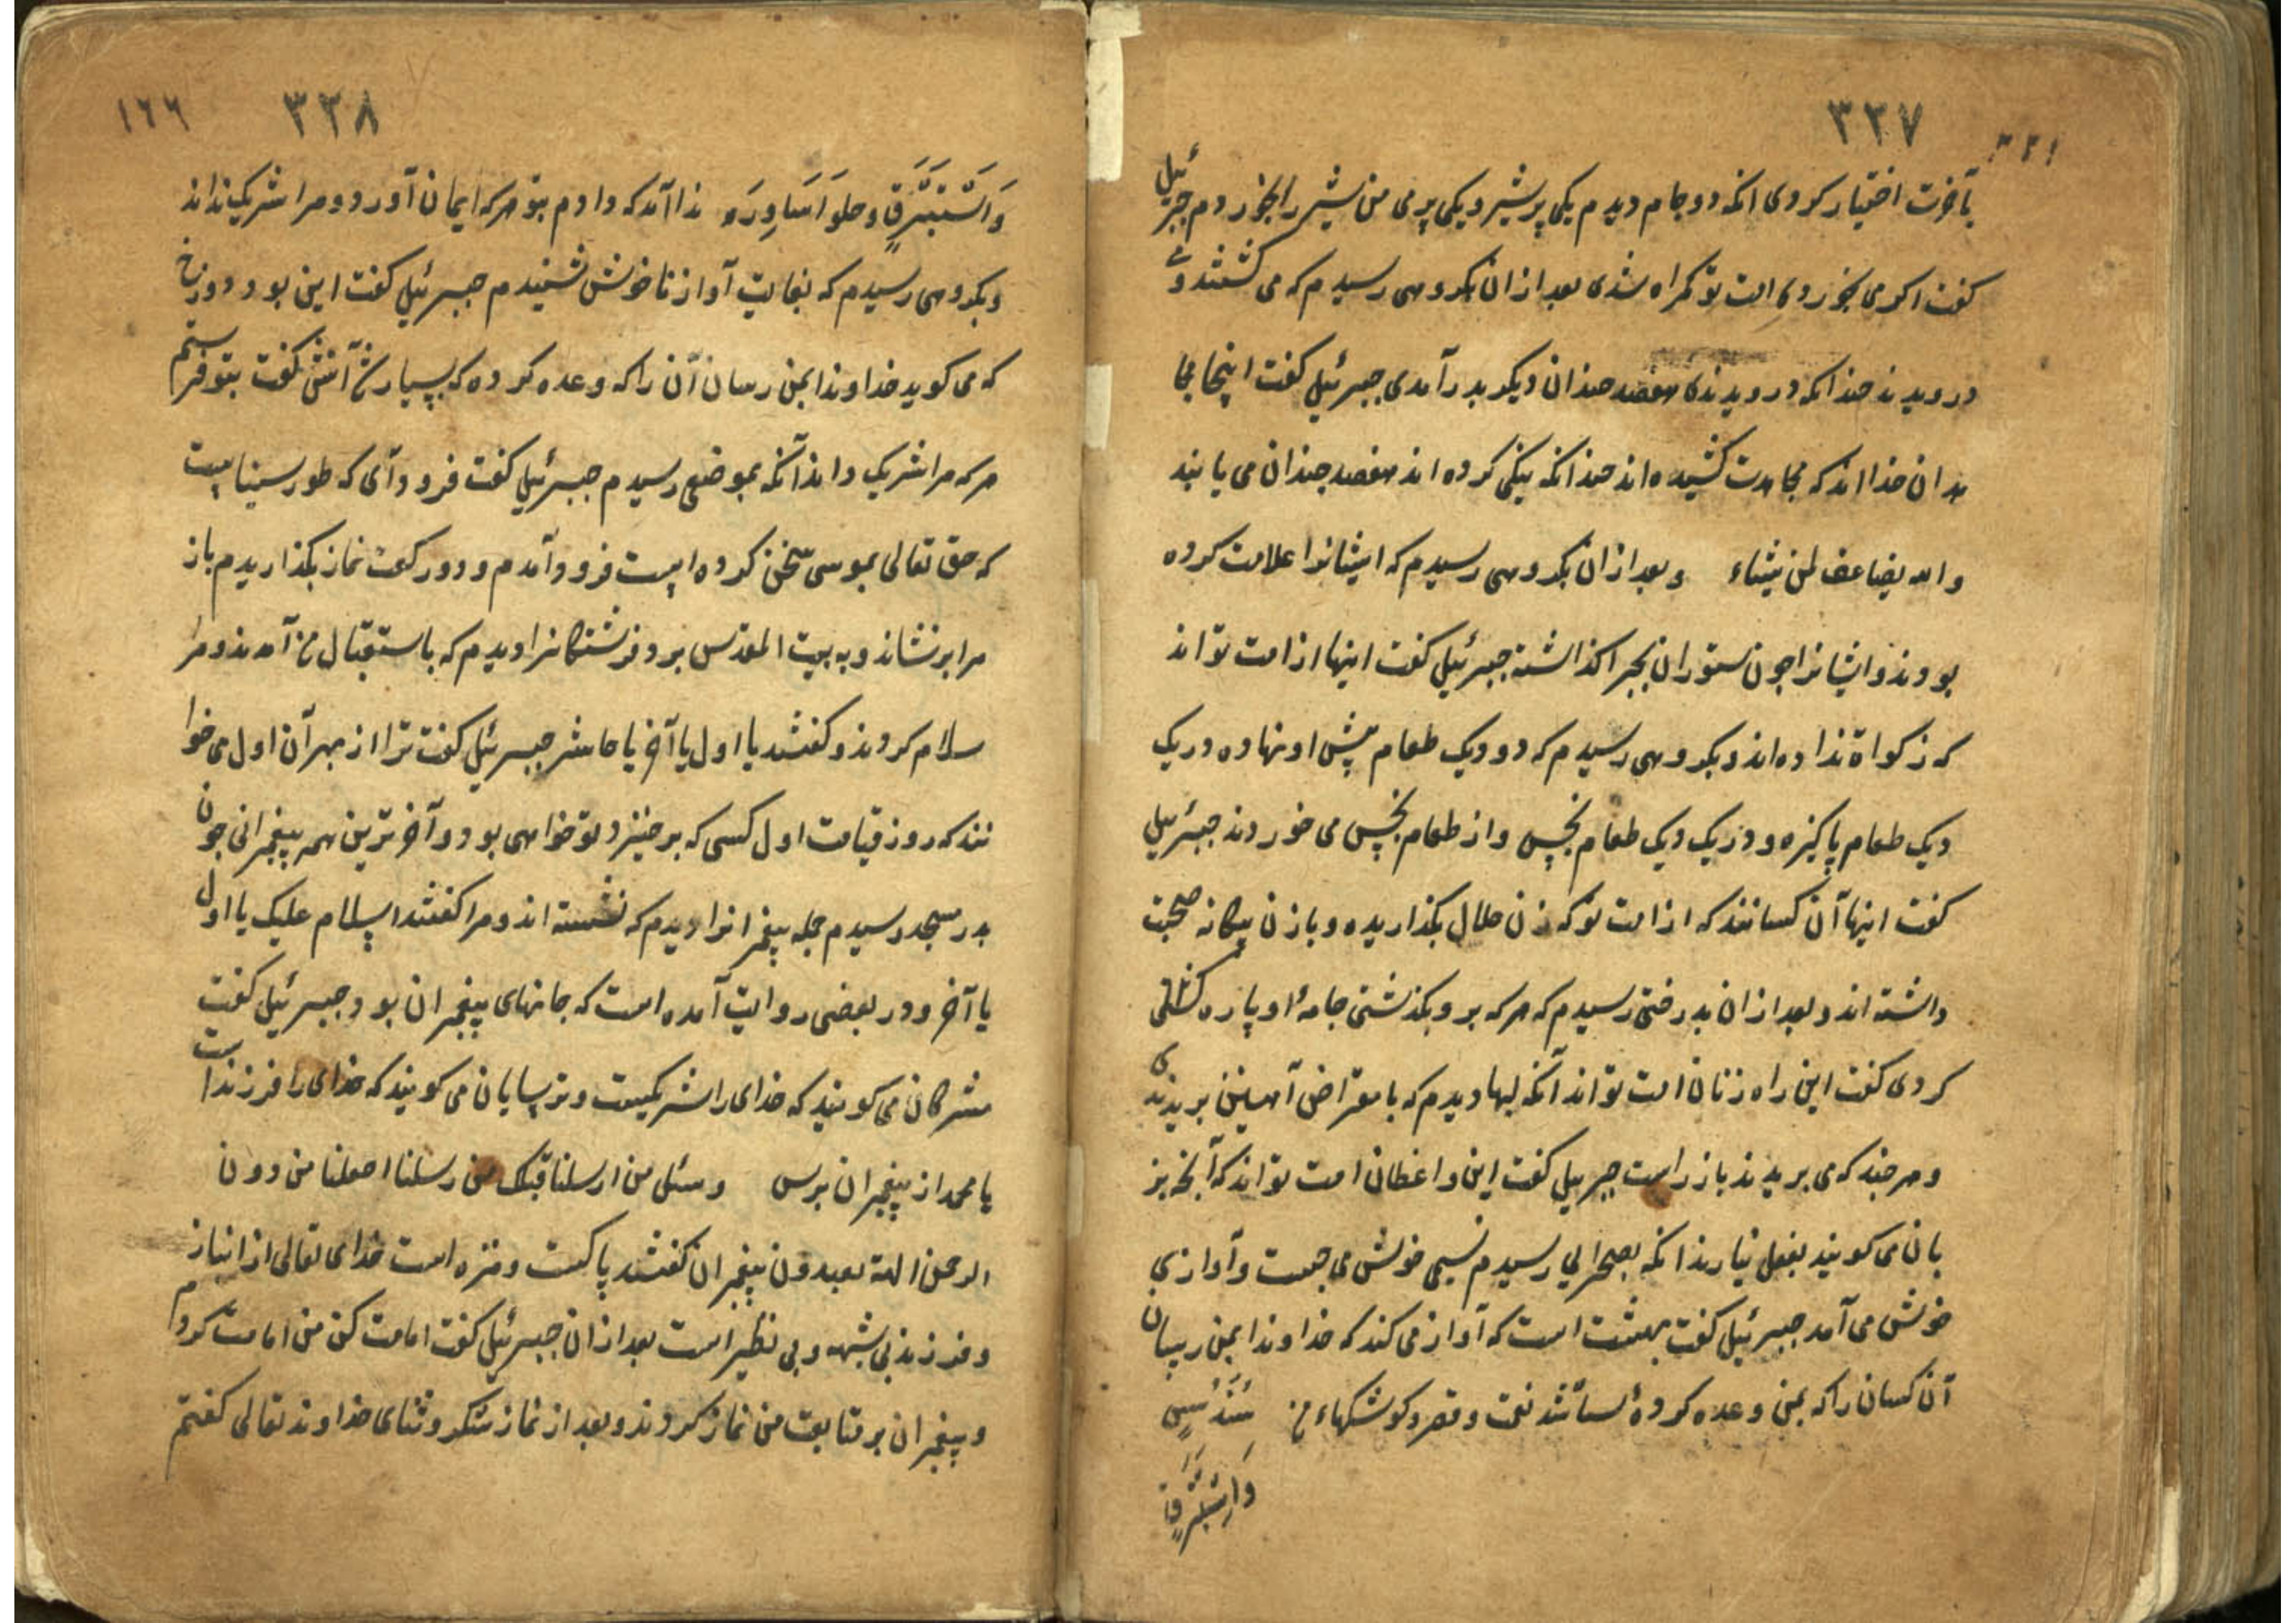 ۳۳۷
بآخرت اختیار کردی انکه دو جام دیدم یکی پر شیر و یکی پر می من شیر را بخوردم جبرئیل
کفت اکر می بخوردی امت تو کمراه شدی بعد ازان بکروهی رسیدم که می کشتند و می
درویدند چندانکه درویدندی هفصد چندان دیکر بدر آمدی جبرئیل کفت اینجا مجا
هدان خدااند که مجاهدت کشیده اند چندانکه نیکی کرده اند هفصد چندان می یابند
والله یضاعف لمن یشاء و بعد ازان بکروهی رسیدم که ایشانرا علامت کرده
بودند و ایشانرا چون ستوران بچرا کذاشته جبرئیل کفت اینها از امت تو اند
که زکواة نداده اند و بکروهی رسیدم که دو دیک طعام پیش او نهاده در یک
دیک طعام پاکیزه و در یک دیک طعام نجس و از طعام نجس می خوردند جبرئیل
کفت اینها آن کسانند که از امت تو که زن حلال بکذاریده و با زن بیکانه صحبت
داشته اند و بعد ازان بدرختی رسیدم که هرکه برو بکذشتی جامهٔ او پاره کشتی
کردی کفت این راه زنان امت تو اند آنکه لبها دیدم که با مقراض آهنین بریدندی
و هرچند که می بریدند باز راست جبرییل کفت این واعظان امت تو اند که آنچه بز
بان می کویند بفعل نیارند انکه بصحرایی رسیدم نسیمی خوش می جست و آوازی
خوش می آمد جبرئیل کفت بهشت است که آواز می کند که خداوندا بمن رسان
آن کسان را که بمن وعده کردهٔ نعمت و قصر و کوشکهاء من سُنْدُسٍ
وَاِسْتَبْرَقٍ
۳۳۸ ۱٦٦
وَاِسْتَبْرَقٍ و حلوا اَسَاوِرَه ندا آمد که دادم بتو هرکه ایمان آورد و مرا شریک نداند
و بکروهی رسیدم که بغایت آواز ناخوش شنیدم جبرئیل کفت این بود دوزخ
که می کوید خداوندا بمن رسان آن را که وعده کرده که بسیار شد آتش کفت بتو فرستم
هرکه مرا شریک داند آنکه بموضعی رسیدم جبرئیل کفت فرود آی که طور سیناست
که حق تعالی بموسی سخن کرده است فرود آمدم و دو رکعت نماز بکذاریدم باز
مرا برنشاند و به بیت المقدس برد فرشتکانرا دیدم که باستقبال من آمدند و مرا
سلام کردند و کفتند یا اول یا آخر یا حاشر جبرئیل کفت ترا از بهر آن اول می خوا
نند که روز قیامت اول کسی که برخیزد تو خواهی بود و آخر ترین همه پیغمبرانی چون
بدر مسجد رسیدم جمله پیغمبرانرا دیدم که نشسته اند و مرا کفتند السلام علیک یا اول
یا آخر و در بعضی روایت آمده است که جانهای پیغمبران بود جبرئیل کفت
مشرکان می کویند که خدای را شریکیست و ترسایان می کویند که خدای را فرزند است
یا محمد از پیغمبران بپرس وسئل من ارسلنا قبلک من رسلنا اجعلنا من دون
الرحمن الهة یعبدون پیغمبران کفتند پاکست و منزه است خدای تعالی از انباز
و فرزند بی شبهه و بی نظیر است بعد ازان جبرئیل کفت امامت کن من امامت کردم
و پیغمبران بر متابعت من نماز کردند و بعد از نماز شکر و ثنای خداوند تعالی کفتم